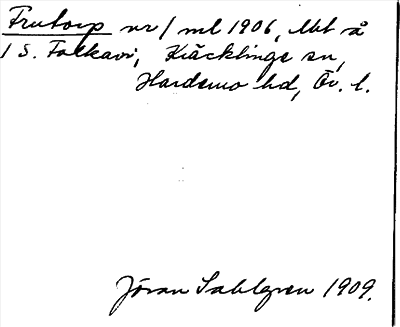 Frutorp nr 1 ml 1906, Mbl å
1 S. Falkavi, Kräcklinge sn,
Hardemo hd, Ör. l.
Jöran Sahlgren 1909.